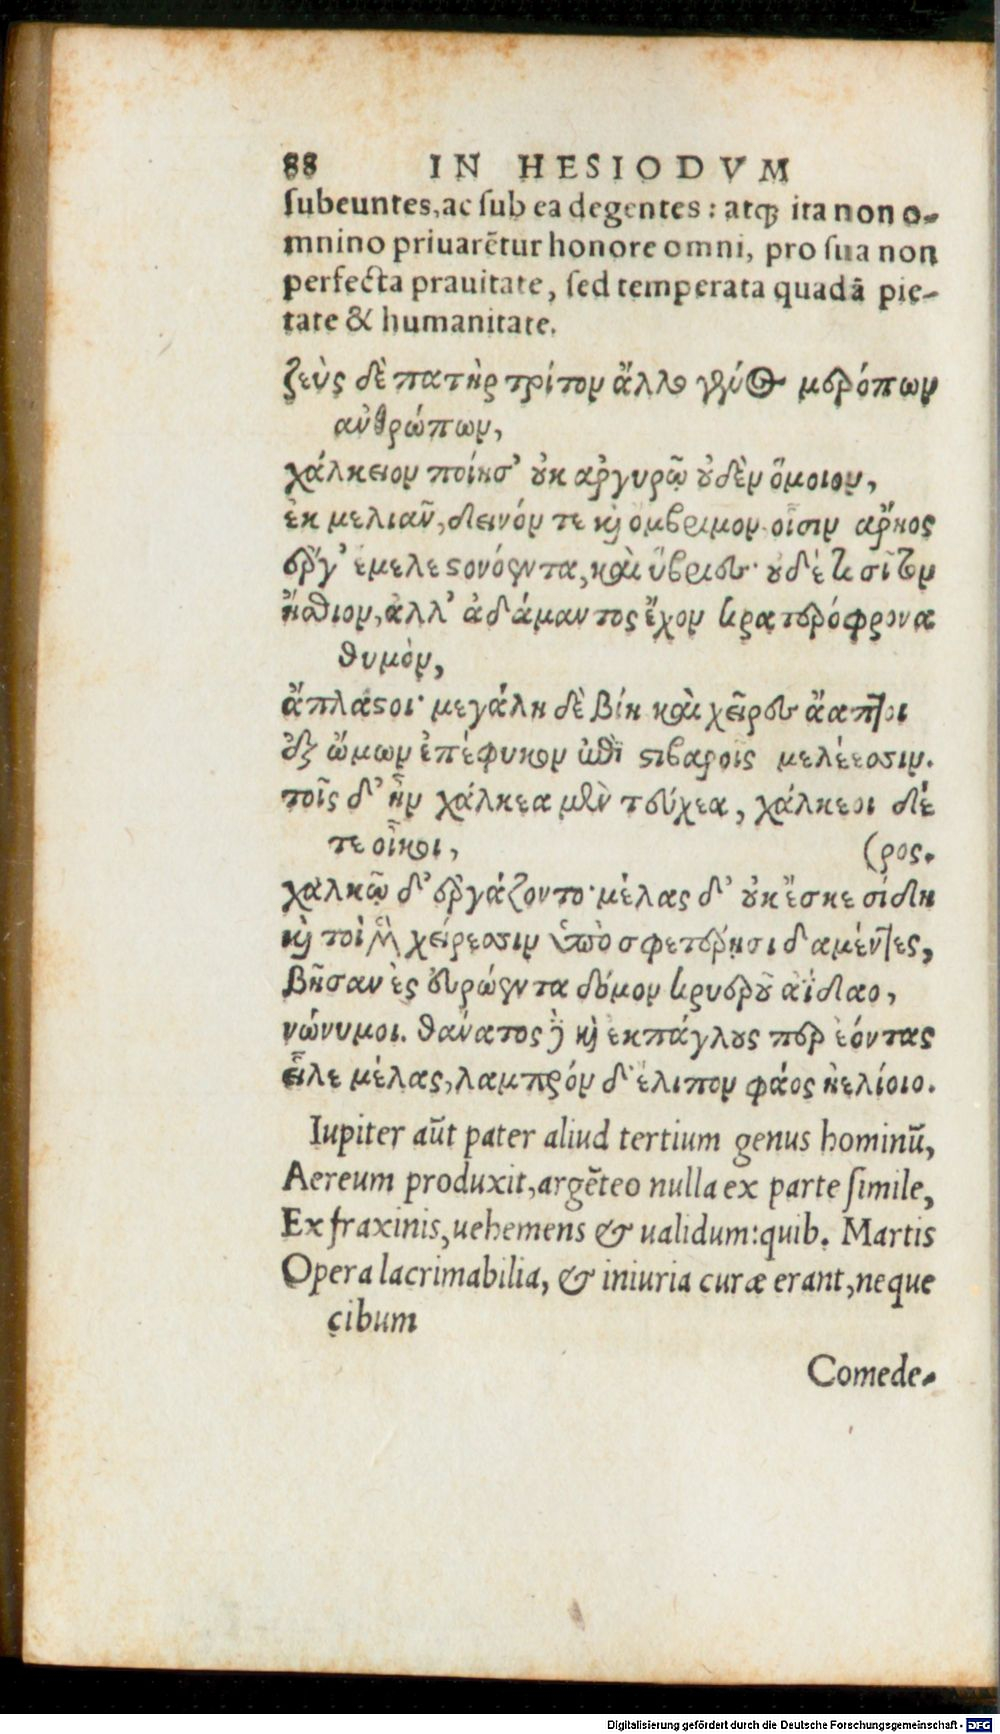 88 IN HESIODVM
subeuntes, ac sub ea degentes : atq; ita non o-
mnino priuarētur honore omni, pro sua non
perfecta prauitate, sed temperata quadā pie-
tate & humanitate.
ζεὺς δὲ πατὴρ τρίτον ἄλλο γένος μερόπων
ανθρώπων,
χάλκειον ποίησ' οὐκ αργυρῷ οὐδὲν ὅμοιον,
ἐκ μελιᾶν, δεινόν τε καὶ ὄμβριμον· οἷσιν αρηος
εργ' ἔμελε στονόεντα, καὶ ὕβριες· οὐδέ τι σῖτον
ἤσθιον, ἀλλ' ἀδάμαντος ἔχον κρατερόφρονα
θυμὸν,
ἄπλαστοι· μεγάλη δὲ βίη καὶ χεῖρες ἄαπτοι
ἐξ ὤμων ἐπέφυκον ἐπὶ στιβαροῖς μελέεσσιν.
τοῖς δ' ἦν χάλκεα μὲν τεύχεα, χάλκεοι δέ
τε οἶκοι, (ρος.
χαλκῷ δ' εργάζοντο· μέλας δ' οὐκ ἔσκε σίδη
καὶ τοὶ μὲν χείρεσσιν ὑπὸ σφετέρῃσι δαμέντες,
βῆσαν ἐς ευρώεντα δόμον κρυεροῦ αΐδαο,
νώνυμοι. θάνατος δὲ καὶ εκπάγλους περ ἐόντας
εἷλε μέλας, λαμπρόν δ' ἔλιπον φάος ἠελίοιο.
Iupiter aūt pater aliud tertium genus hominū,
Aereum produxit, argēteo nulla ex parte simile,
Ex fraxinis, uehemens & ualidum: quib. Martis
Opera lacrimabilia, & iniuria curæ erant, neque
cibum
Comede-
Digitalisierung gefördert durch die Deutsche Forschungsgemeinschaft - DFG